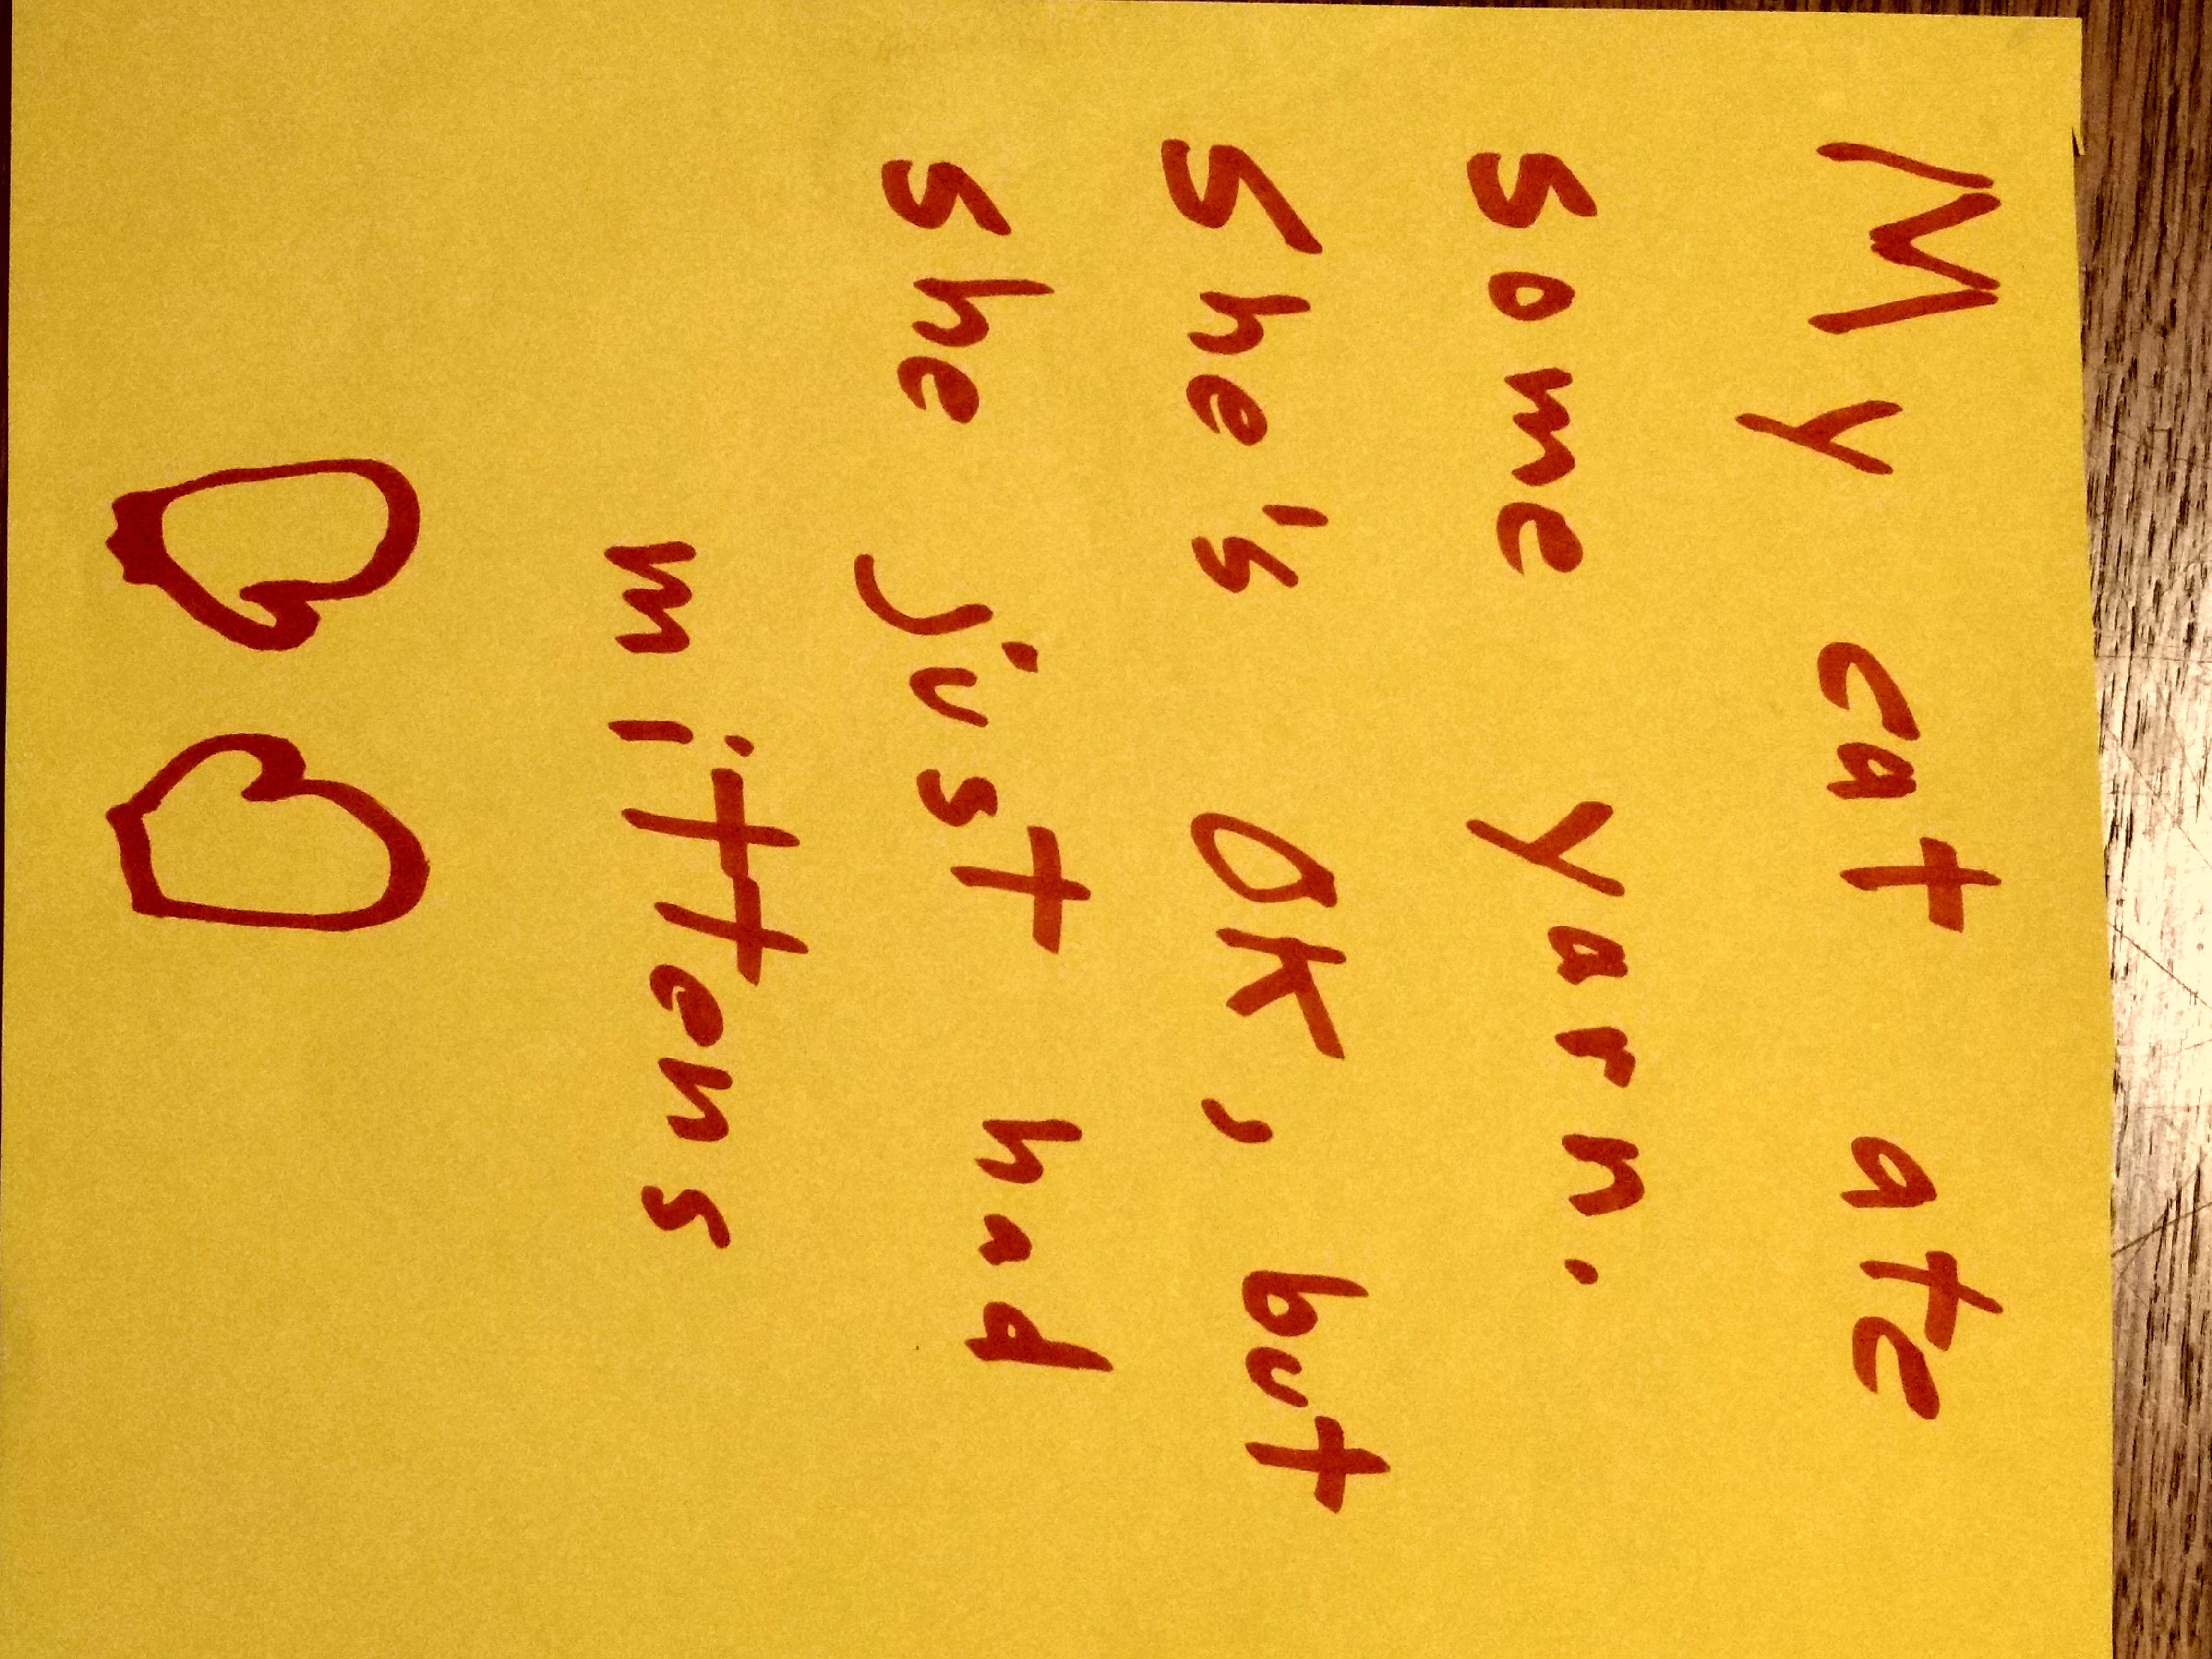 My cat ate
some yarn.
She's OK, but
she just had
mittens